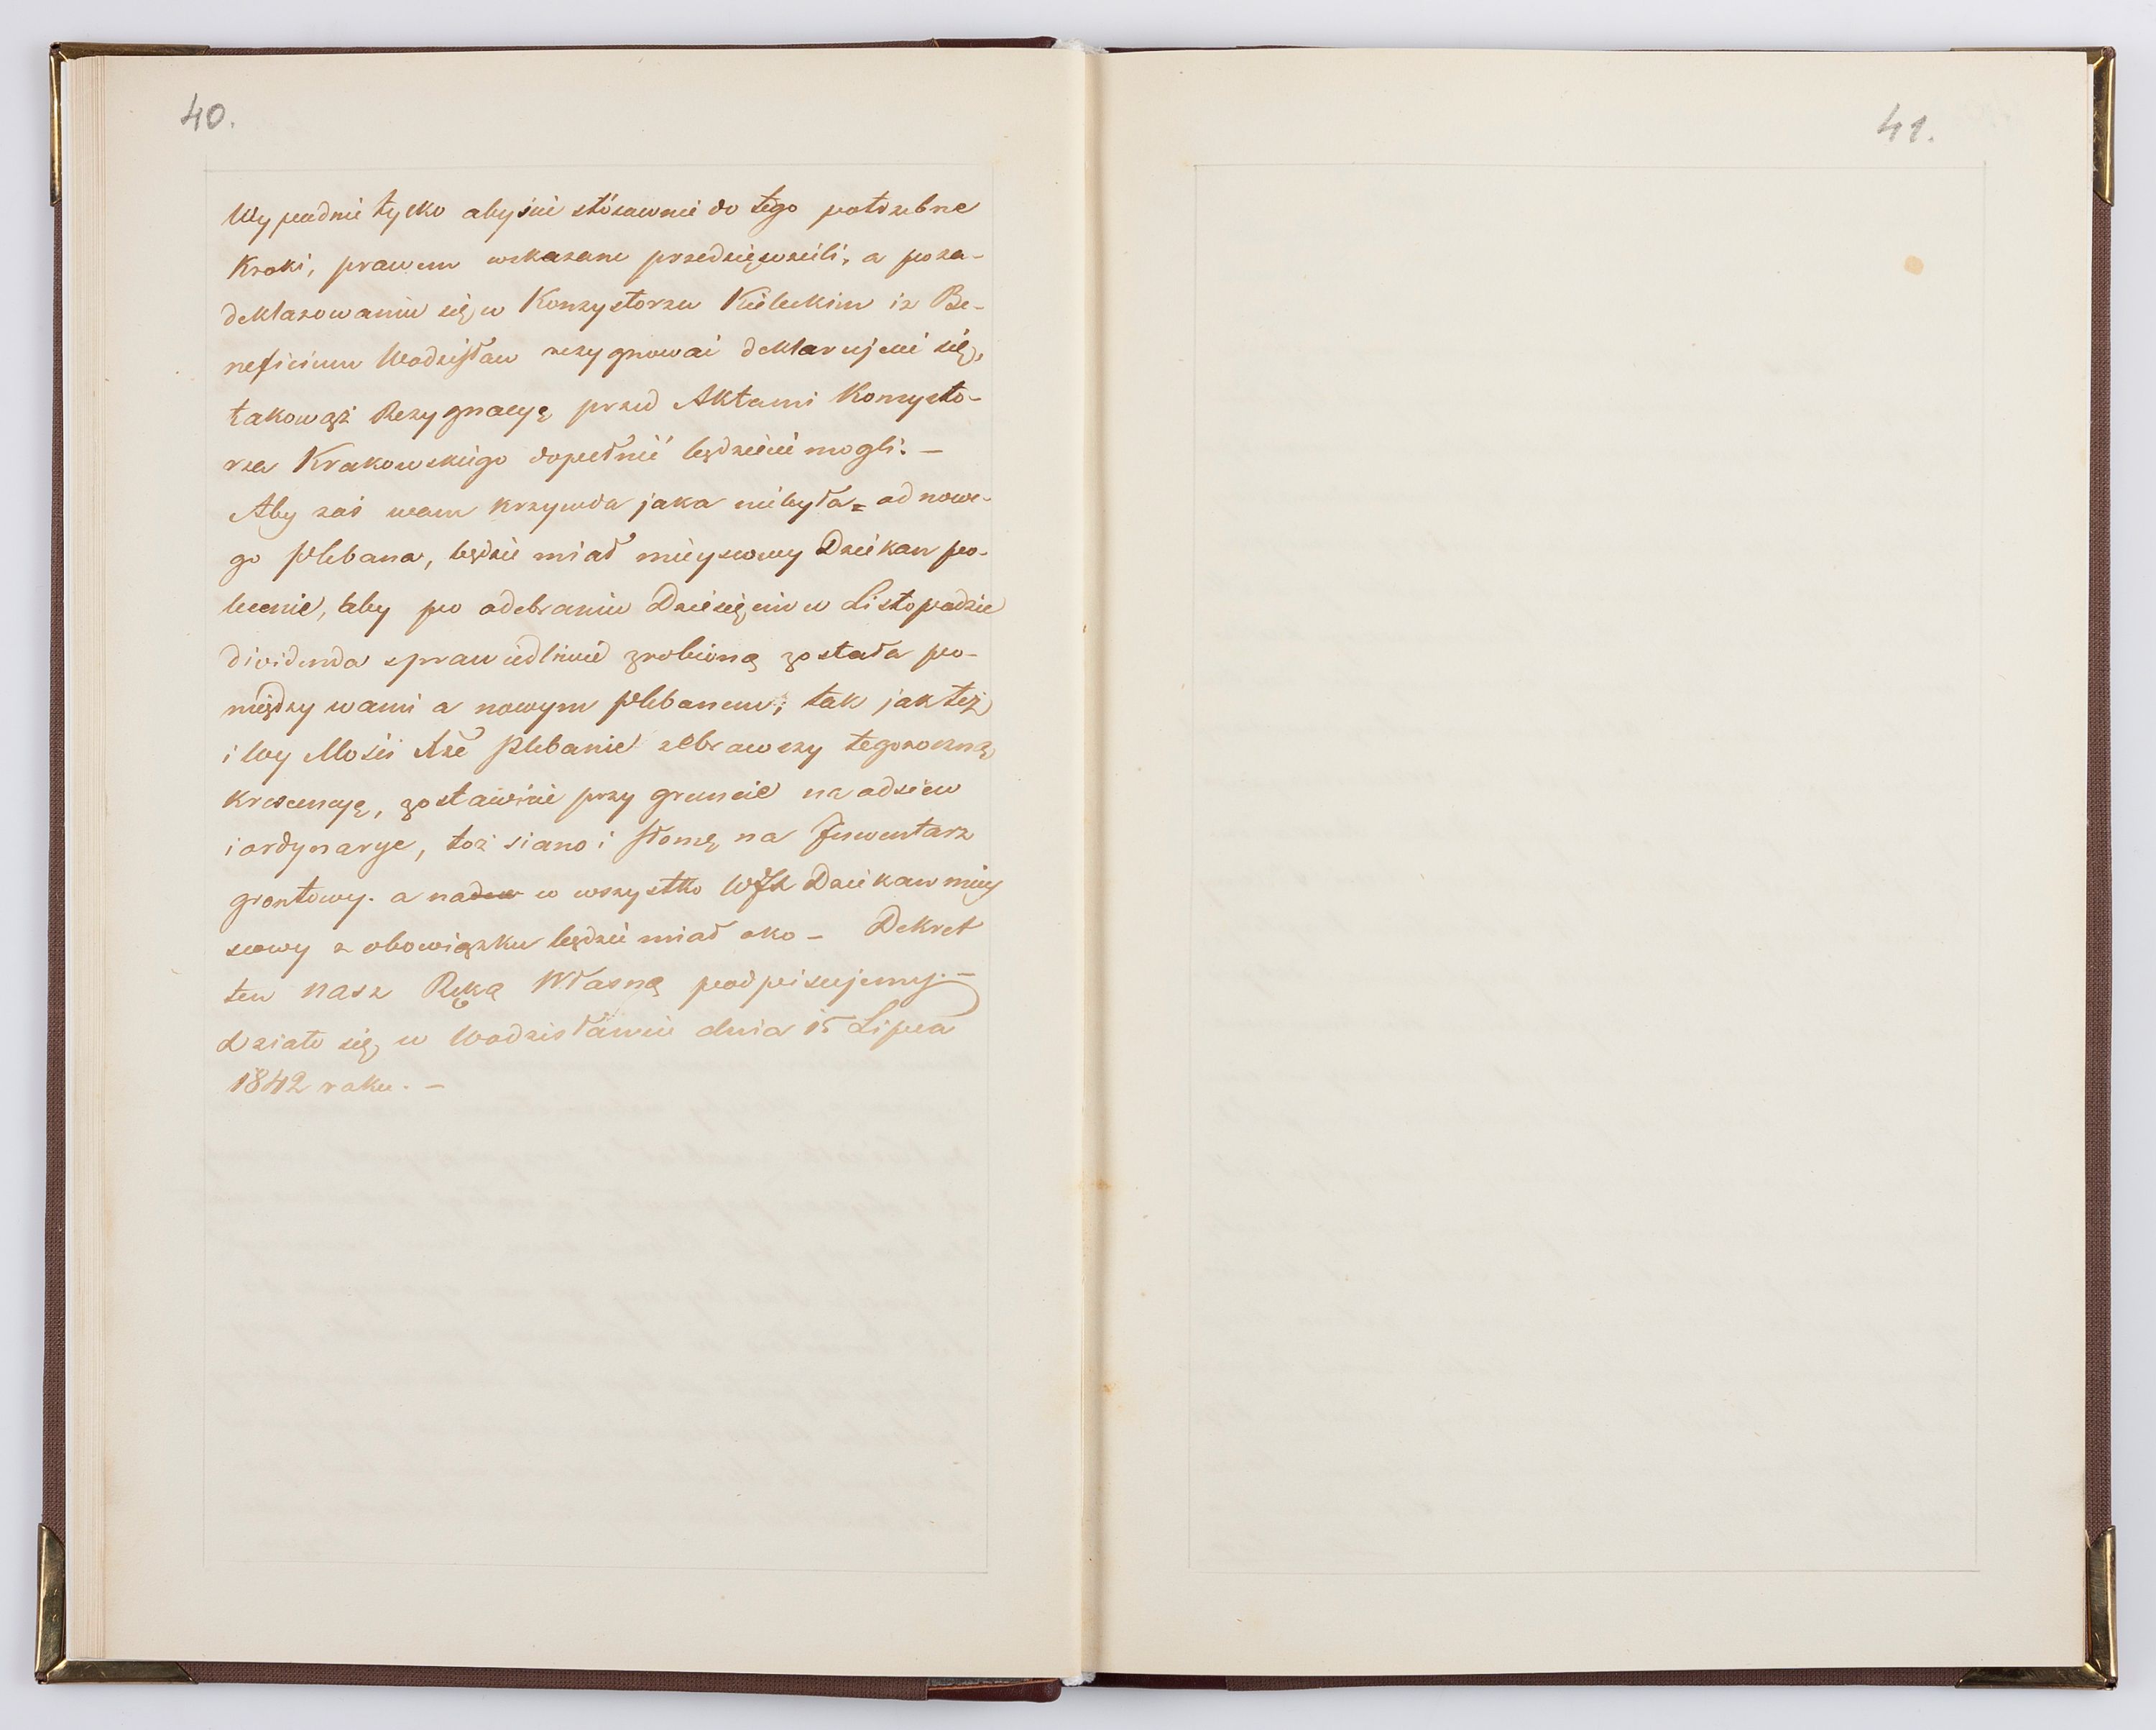 40.
Wypadnie tylko abyście stósownie do tego potrzebne
Kroki, prawem wskazane przedsięwzieli, a poza-
deklarowaniu się w Konsystorzu Kieleckim iż Be-
neficium Wodzisław rezygnować deklarujecie się,
takowąż Rezygnacyę przed Aktami Konsysto-
rza Krakowskiego dopełnić będziecie mogli. —
Aby zaś wam krzywda jaka niebyła = od nowe-
go Plebana, będzie miał mieyscowy Dziekan po-
lecenie, aby po odebraniu Dziesięcin w Listopadzie
dividenda sprawiedliwie zrobioną została po-
między wami a nowym Plebanem; tak jak też
i Wy Mości Xże Plebanie zebrawszy tegoroczną
krescencyę, zostawicie przy gruncie na odsiew
i ordynarye, toż siano i słomę na Inwentarz
grontowy. a nad w wszystko WJX Dziekan miey
scowy z obowiązku będzie miał oko — Dekret
ten nasz Ręką Własną podpisujemy. —
działo się w Wodzisławiu dnia 15 Lipca
1842 roku. —
41.